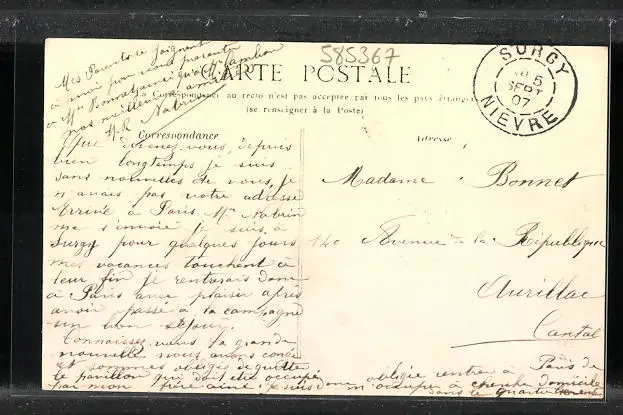 585367
Mes Parents se joignent
à moi pour vous présenter
à Mme Bonnet ainsi qu'à Mr Jambon
nos meilleures amitiés
H. R. Nabrin
CARTE POSTALE
Correspondance au recto n'est pas acceptée par tous les pays étrangers
(se renseigner à la Poste)
SURGY
5
SEPT
07
NIEVRE
Correspondance
Adresse
Que devenez vous, depuis
bien longtemps je suis
sans nouvelles de vous, je
n'avais pas votre adresse
Arrivée à Paris Mr Nabrin
me l'envoie je suis à
Surgy pour quelques jours
mes vacances touchent à
leur fin je rentrerais donc
à Paris avec plaisir après
avoir passé à la campagne
un bon séjour.
Connaissez vous la grande
nouvelle nous avons
et sommes obligés de quitter
le pavillon qui doit être occupé
par mon frère aîné je suis donc
obligée rentrée à Paris de
m'occuper à cherche domicile
dans le quartier
Madame Bonnet
140 Avenue de la République
Aurillac
Cantal